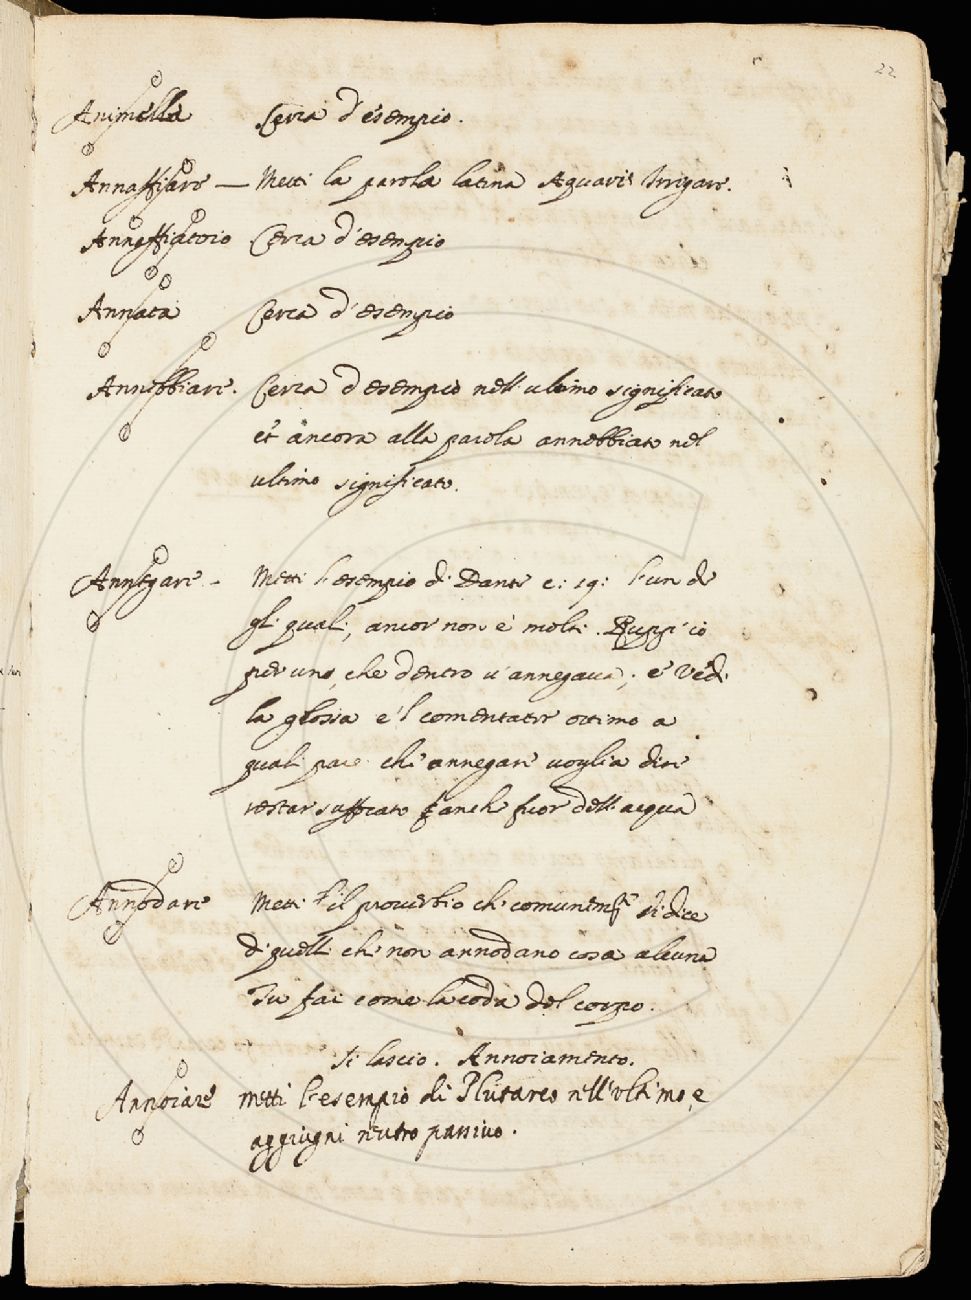 22
Animella Cerca d'esempio.
Annaffiare — Metti la parola latina Aquari Irrigare.
Annaffiatoio Cerca d'esempio
Annata Cerca d'esempio
Annebbiare. Cerca d'esempio nell'ultimo significato
et ancora alla parola annebbiato nel
ultimo significato.
Annegare - Metti l'esempio di Dante c: 19: l'un de
gli quali, ancor non è molt'. Ruppi io
per uno, che dentro v'annegava; e vedi
la glosa e'l comentator ottimo a
quali pare che annegare voglia dire
restar suffocato anch fuor dell'acqua
Annodare Metti il proverbio che comunem.te si dice
di quelli che non annodano cosa alcuna
Tu fai come la coda del corpo.
Si lascio. Annoiamento.
Annoiare metti l'esempio di Plutarco nell'vltimo, e
aggiugni neutro passiuo.